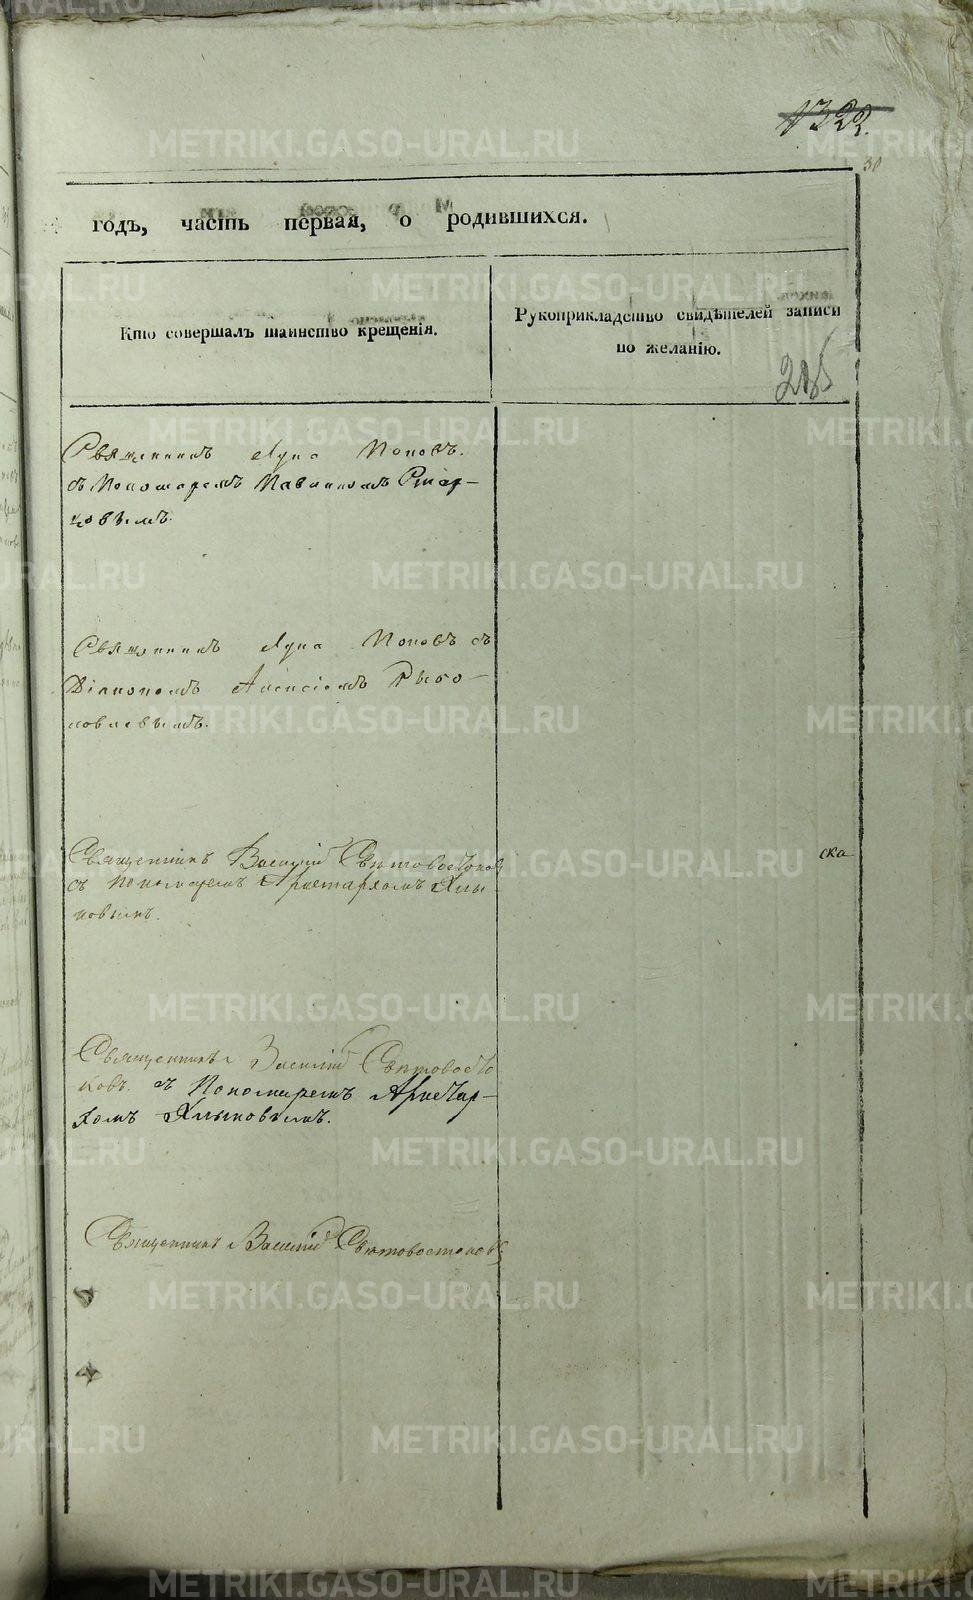 1322.
30
годъ, часть первая, о родившихся.
Кто совершалъ таинство крещенія.
Рукоприкладство свидѣтелей записи
по желанію.
Священникъ Лука Поповъ.
съ Пономаремъ Павлиномъ Стар-
цовымъ.
Священникъ Лука Поповъ съ
Діакономъ Алексіемъ Рыбо-
ловлевымъ.
Священникъ Василій Святовостоковъ
съ пономаремъ Аристархомъ Хлы-
новымъ.
ска
Священникъ Василій Святовосто
ковъ. съ Пономаремъ Аристар-
хомъ Хлыновымъ.
Священникъ Василій Святовостоковъ
METRIKI.GASO-URAL.RU